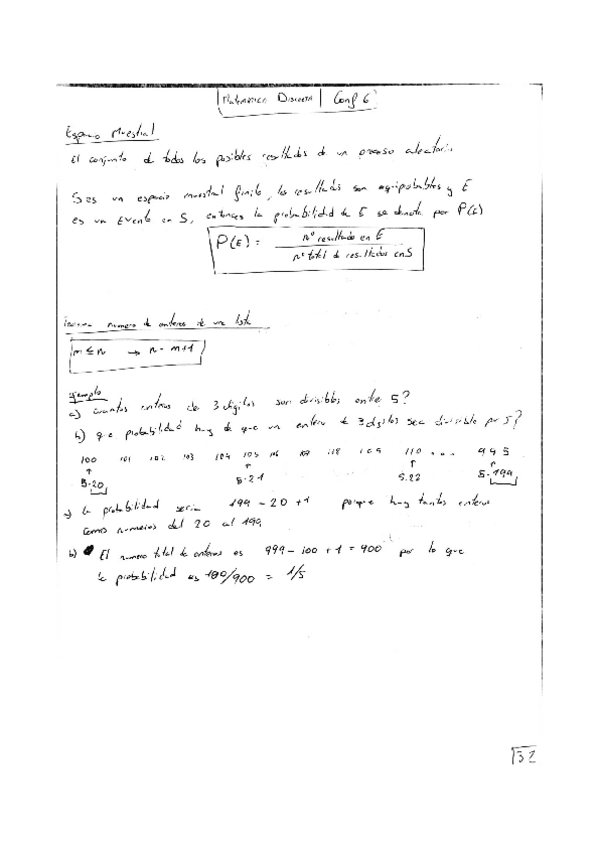 Matematica Discreta | Conf 6
Espacio Muestral
El conjunto de todos los posibles resultados de un proceso aleatorio
S es un espacio muestral finito, los resultados son equiprobables y E
es un Evento en S, entonces la probabilidad de E se denota por P(E)
P(E) = nº resultados en E / nº total de resultados en S
numero de enteros de una lista
m ≤ n → n - m + 1
ejemplo
a) cuantos enteros de 3 digitos son divisibles entre 5?
b) que probabilidad hay de que un entero de 3 digitos sea divisible por 5?
100 101 102 103 104 105 106 107 108 109 110 ... 995
5·20 5·21 5·22 5·199
a) la probabilidad seria 199 - 20 + 1 porque hay tantos enteros
como numeros del 20 al 199
b) El numero total de enteros es 999 - 100 + 1 = 900 por lo que
la probabilidad es 180/900 = 1/5
32